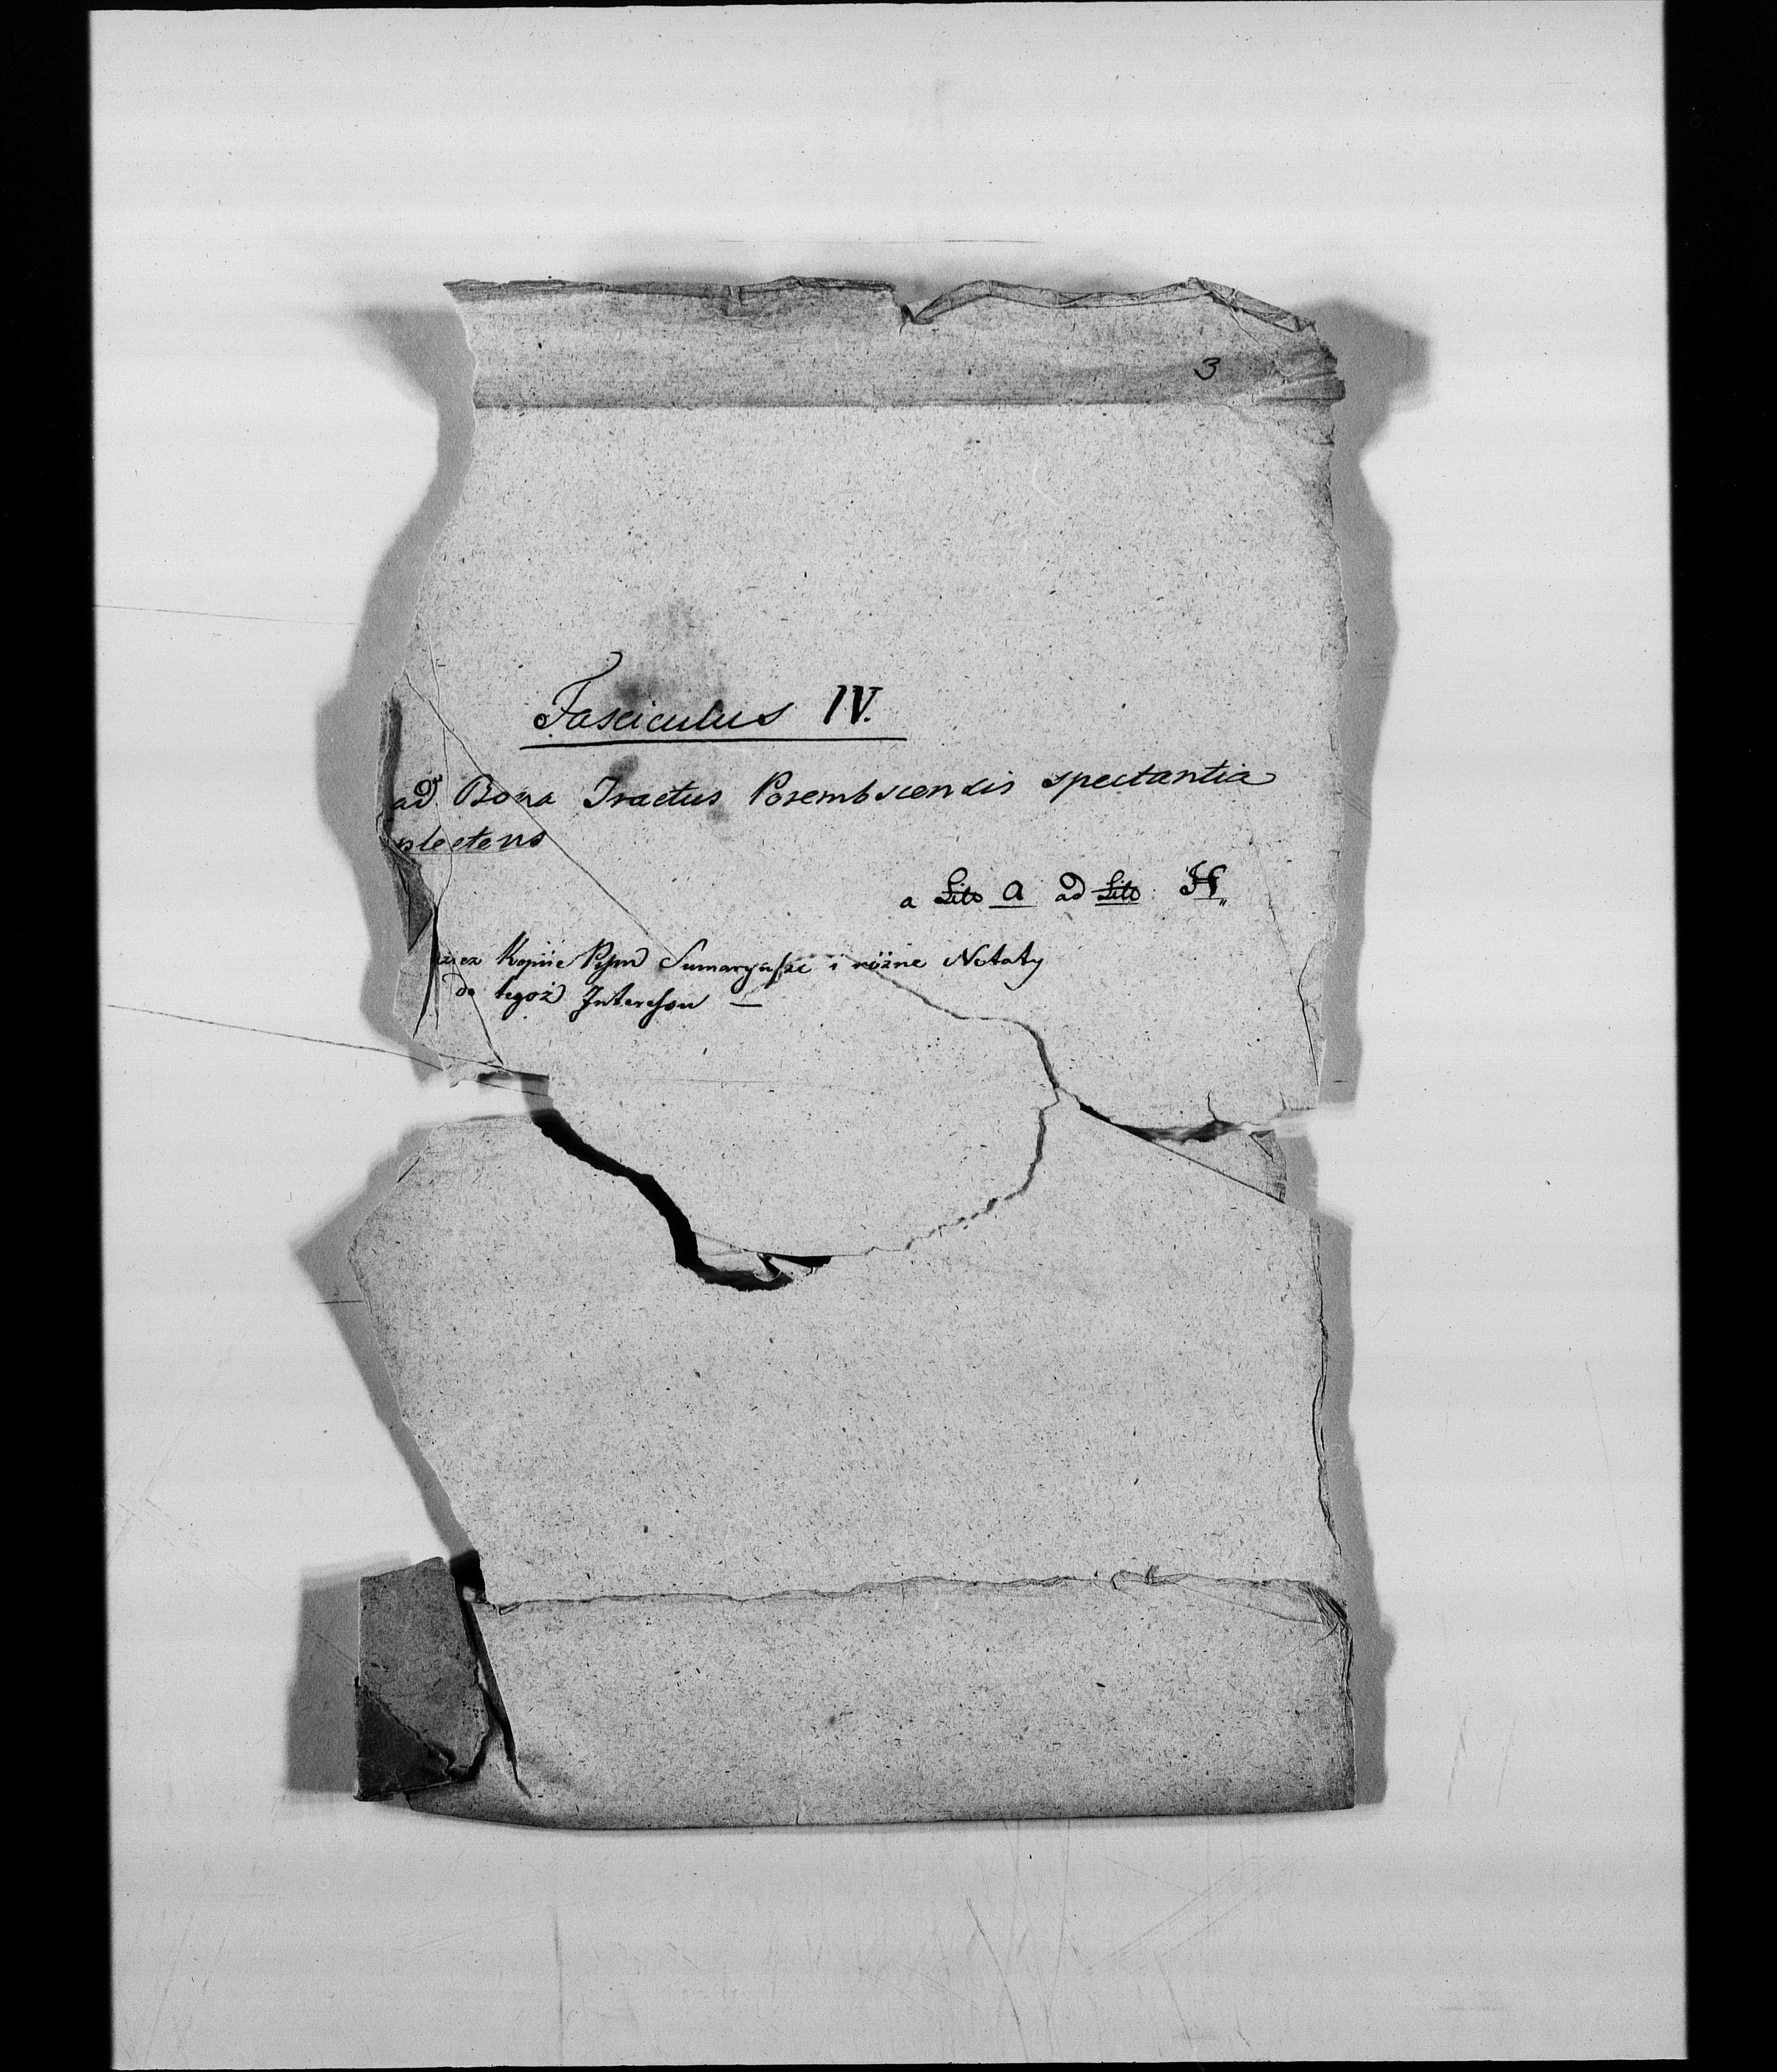 3
Fasciculus IV.
ad Bona Tractus Porembscensis spectantia
plectens
a Litt a ad Litt H„
Kopiie Pism Sumaryusze i różne Notaty
do tegoż Interessu —